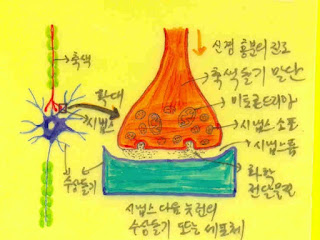 신경 흥분의 진로
축색
축색돌기 말단
확대
미토콘드리아
시냅스
시냅스 소포
시냅스틈
수상돌기
화학
전달물질
시냅스 다음 뉴런의
수상돌기 또는 세포체